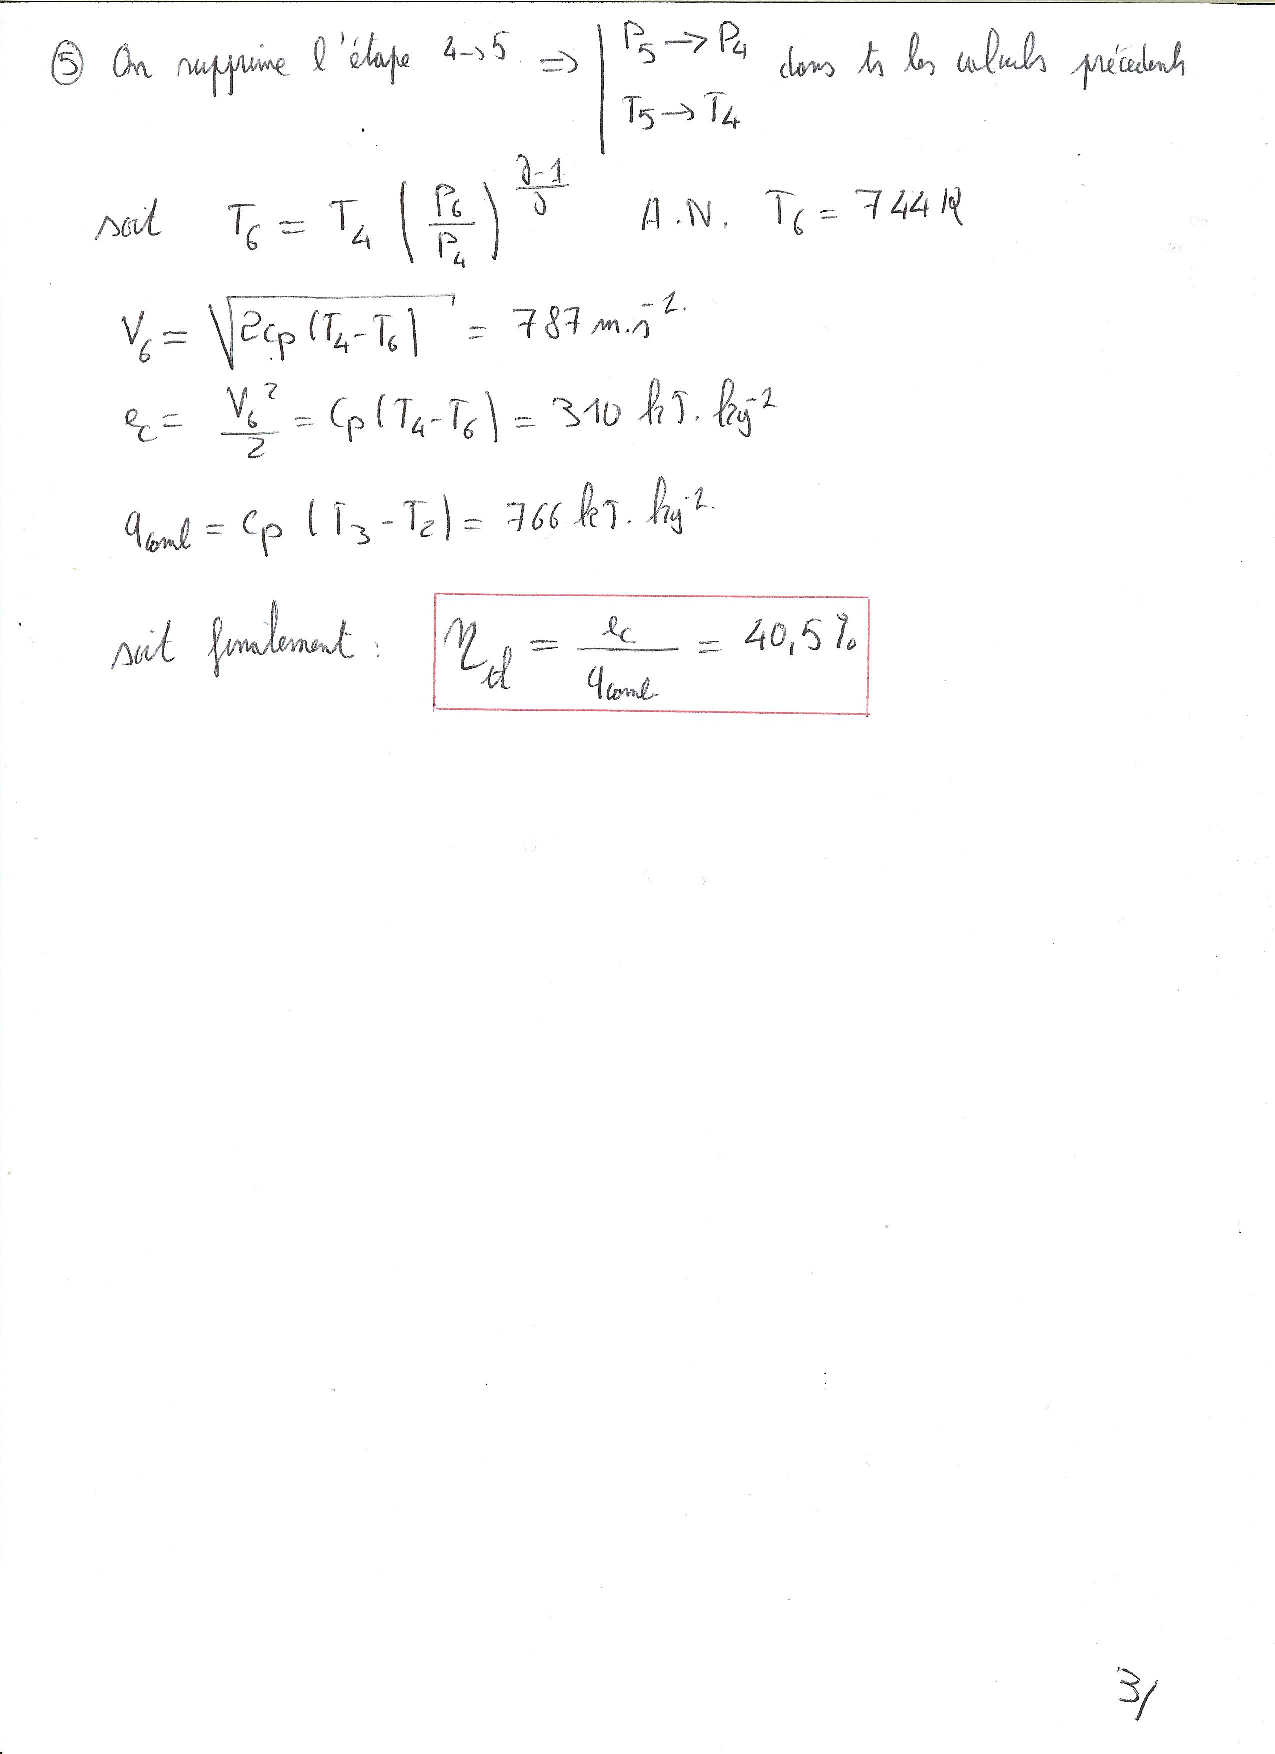 ⑤ On supprime l'étape 4→5 ⇒ | P5 → P4 dans ts les calculs précédents
T5 → T4
soit T6 = T4 (P6/P4)^((γ-1)/γ) A.N. T6 = 744 K
V6 = √(2cp(T4-T6)) = 787 m.s⁻¹.
ec = V6²/2 = cp(T4-T6) = 310 kJ.kg⁻¹
qcomb = cp (T3-T2) = 766 kJ.kg⁻¹.
soit finalement : ηd = ec/qcomb = 40,5%
3/